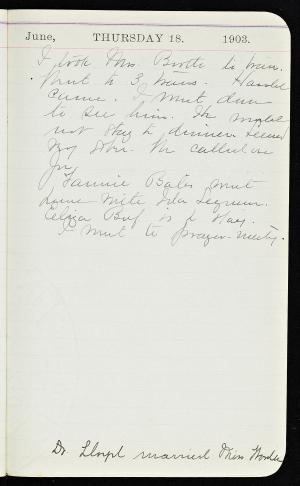 June, THURSDAY 18. 1903.
I took Mrs. to train.
Went to 3 trains. Harold
came. I went down
to see him. He would
not stay to dinner.
my We called on
Joy
Fannie Bates went
home with Ida Seymour.
Eliza is
I went to prayer-meeting.
Dr. Lloyd married Miss